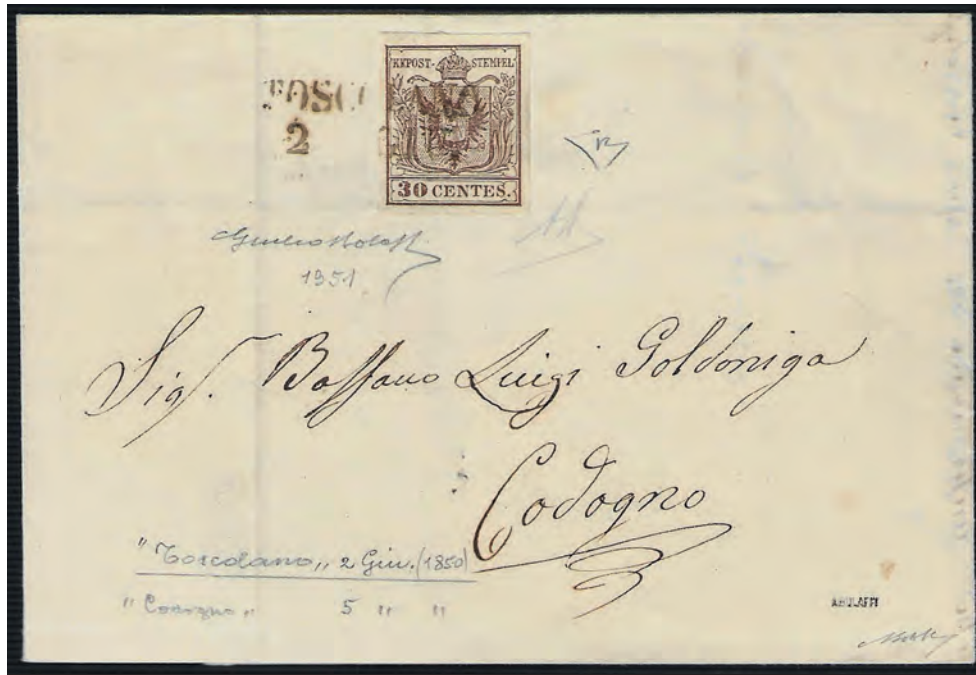 KKPOST-STEMPEL
TOSCO
2
30 CENTES.
Giulio Bolaffi
1951
Sig.r Bassano Luigi Goldoniga
Codogno
"Toscolano„ 2 Giu. (1850)
"Codogno„ 5 " "
A.BOLAFFI